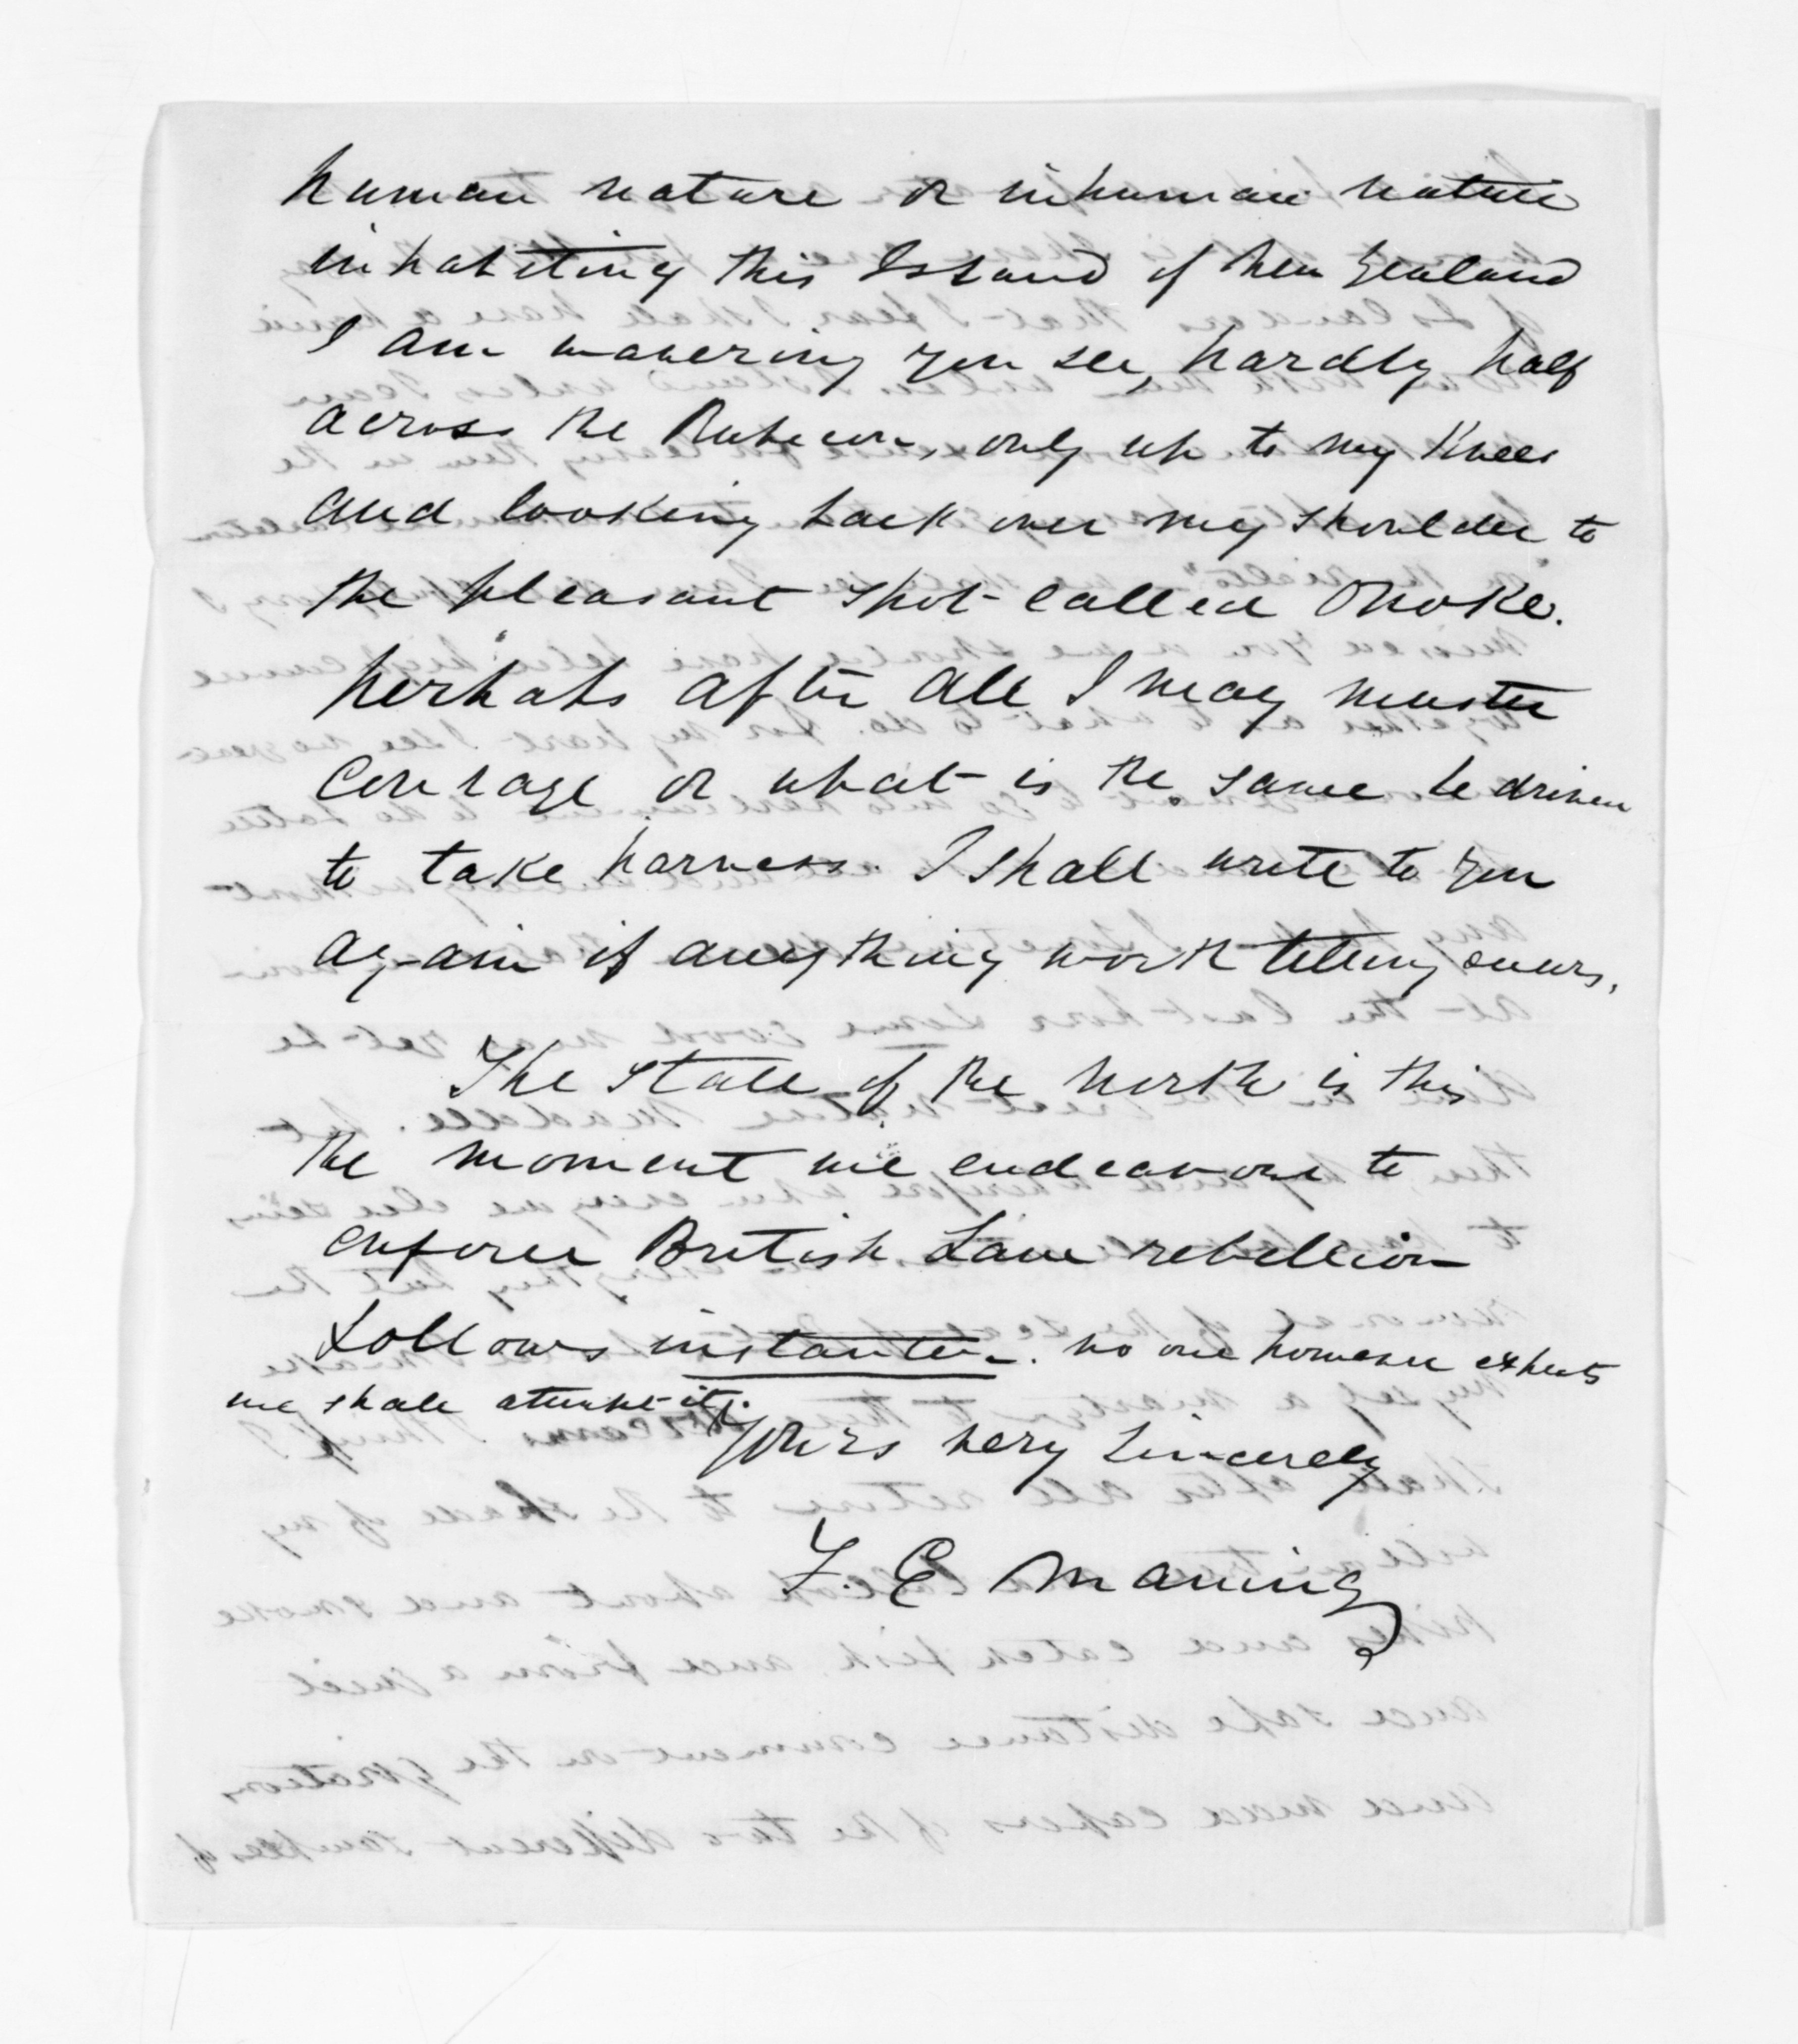 human nature or inhuman nature
inhabiting this Island of New Zealand
I am wavering you see, hardly half
across the Rubicon, only up to my Knees
and looking back over my shoulder to
the pleasant spot called Onoke.
perhaps after all I may muster
Courage, or what is the same be driven
to take harness. I shall write to you
again if anything worth telling occurs.
The state of the North is this
the moment we endeavour to
enforce British Law rebellion
follows instanter. no one however expects
we shall attempt it.
Yours very Sincerely
F. E Maning